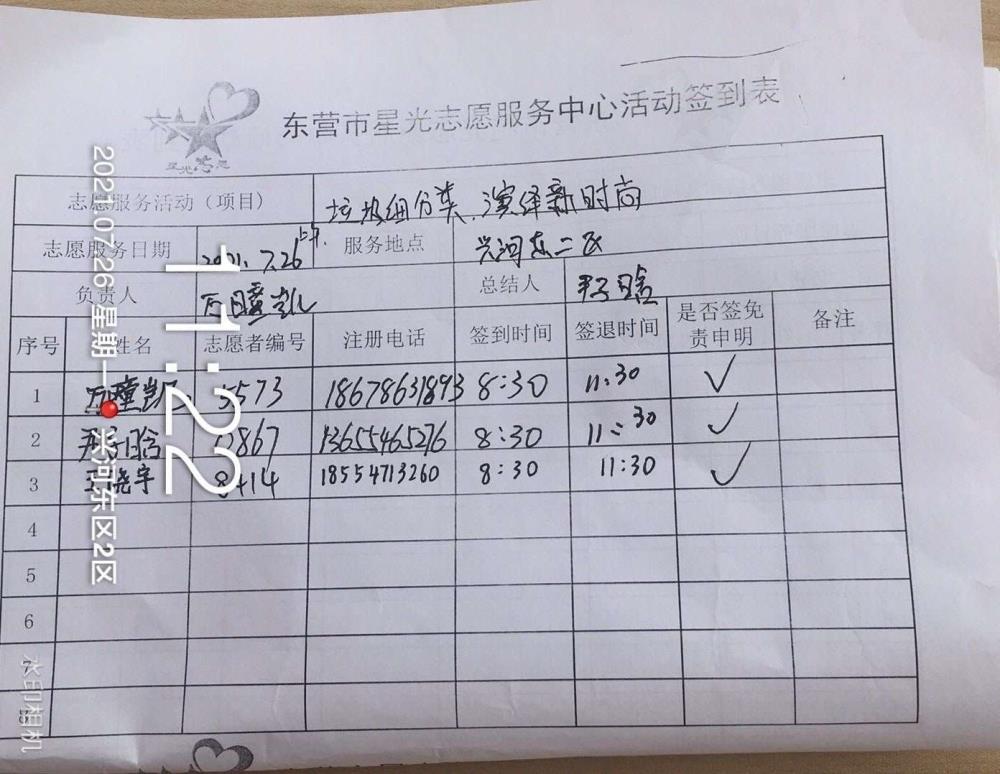 东营市星光志愿服务中心活动签到表
星光志愿
志愿服务活动（项目） 垃圾细分类、演绎新时尚
志愿服务日期 2021.7.26 上午 服务地点 兴河东二区
负责人 总结人
序号 姓名 志愿者编号 注册电话 签到时间 签退时间 是否签免责申明 备注
1 5573 18678631893 8:30 11:30 ✓
2 13655465276 8:30 11:30 ✓
3 王晓宇 8414 18554713260 8:30 11:30 ✓
4
5
6
2021.07.26 星期一 兴河东区2区
11:22
水印相机